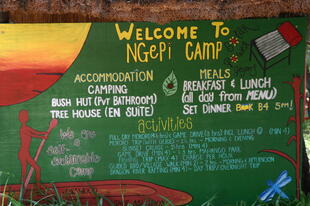 WELCOME TO
NGEPI CAMP
ACCOMMODATION
CAMPING
BUSH HUT (PVT BATHROOM)
TREE HOUSE (EN SUITE)
MEALS
BREAKFAST & LUNCH
(all day from MENU)
SET DINNER BOOK B4 5pm!
activities
We are a
Self-
Sustainable
Camp
FULL DAY MOKORO
GAME DRIVE
INCL LUNCH
MOKORO TRIP (WITH GUIDE)
MORNING & EVENING
SUNSET CRUISE
GAME DRIVE (MIN 4)
MAHANGO PARK
FISHING TRIP (MAX 4) CHARGE PER HOUR
GUIDED VILLAGE
MORNING & AFTERNOON
DRAGON RIVER RAFTING (MIN 4) - DAY TRIP / OVERNIGHT TRIP